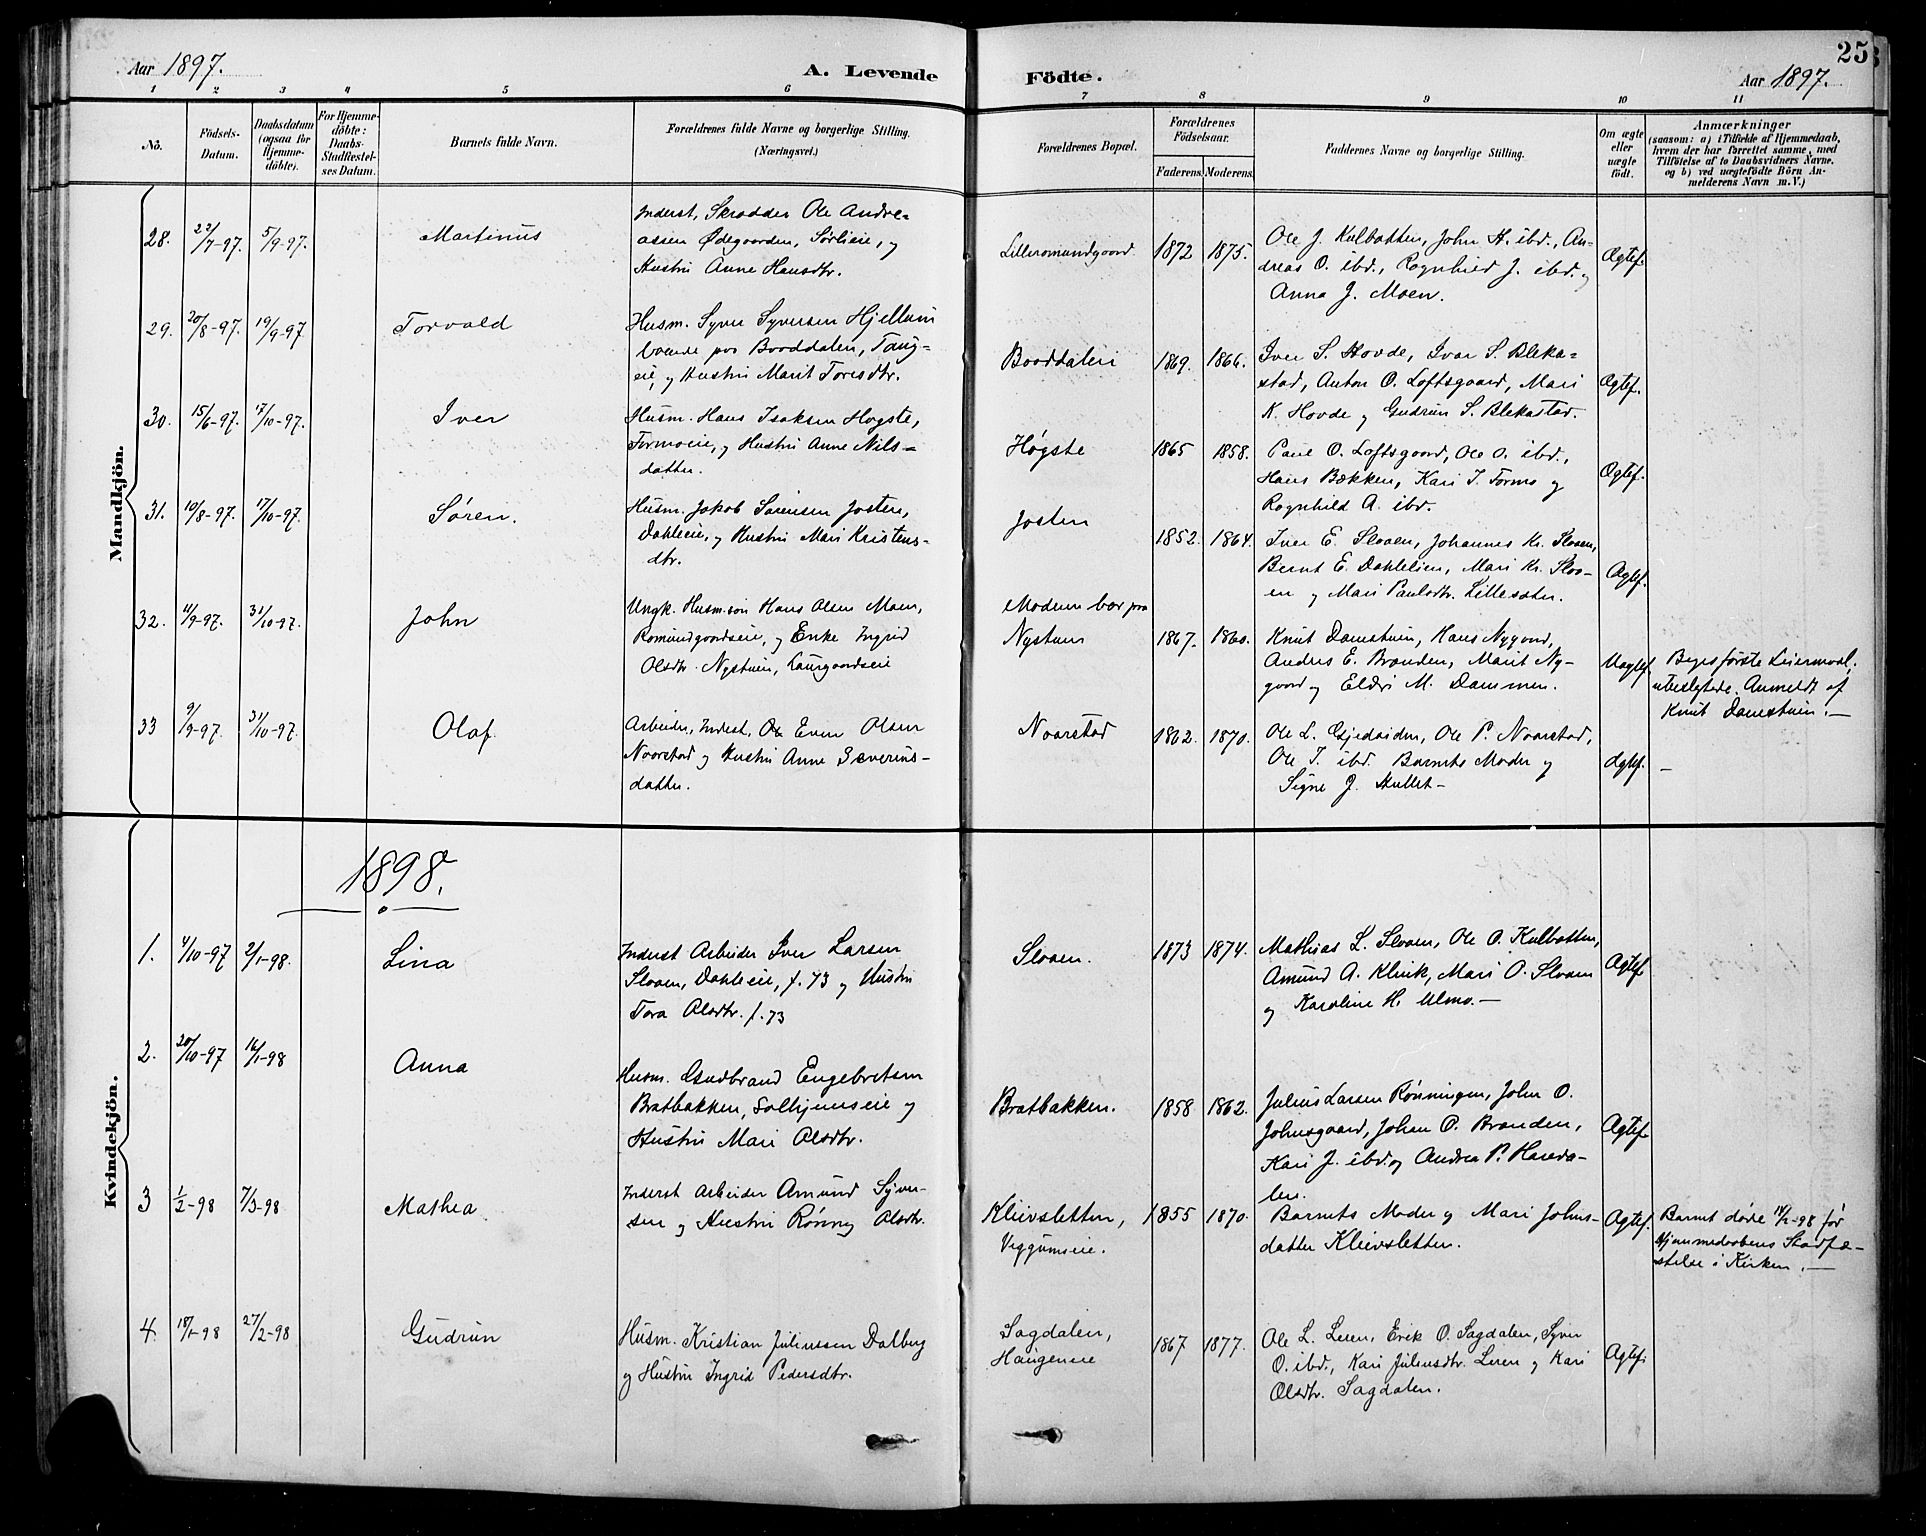 Aar 1897.
A. Levende Födte.
Aar 1897.
25
1 2 3 4 5 6 7 8 9 10 11
No.
Födsels-
Datum.
Daabsdatum
(ogsaa for
Hjemme-
döbte).
For Hjemme-
döbte:
Daabs-
Stadfæstel-
ses Datum.
Barnets fulde Navn.
Forældrenes fulde Navne og borgerlige Stilling.
(Næringsvei.)
Forældrenes Bopæl.
Forældrenes
Födselsaar.
Faderens.
Moderens.
Faddernes Navne og borgerlige Stilling.
Om ægte
eller
uægte
födt.
Anmærkninger
(saasom: a) i Tilfælde af Hjemmedaab,
hvem der har forrettet samme, med
Tilföielse af to Daabsvidners Navne.
og b) ved uægtefödte Börn An-
melderens Navn m.V.)
Mandkjön.
28. 22/7-97. 5/9-97.
Martinus
Inderst, Skrædder Ole Andre-
asen Ødegaarden, Sørlieie, og
Hustru Anne Hansdtr.
Lilleromundgaard
1872 1875.
Ole J. Kulbotten, John H. ibd., An-
dreas O. ibd., Rognhild J. ibd. og
Anna J. Moen.
Ægtef.
29. 20/8-97. 19/9-97
Torvald
Husm. Syver Syversen Hjellum
boende paa Booddalen, Taug-
eie, og Hustru Marit Toresdtr.
Booddalen
1869. 1866.
Iver S. Hovde, Ivar S. Bleka-
stad, Anton O. Loftsgaard, Mari
K. Hovde og Gudrun S. Blekastad.
Ægtef.
30. 15/6-97. 17/10-97.
Iver
Husm. Hans Isaksen Høgste,
Formoeie, og Hustru Anne Nils-
datter.
Høgste
1865 1858.
Paul O. Loftsgaard, Ole O. ibd.,
Hans Bækken, Kari I. Formo og
Rognhild A. ibd.
Ægtef.
31. 10/8-97. 17/10-97.
Søren.
Husm. Jakob Sørensen Josten,
Dahleie, og Hustru Mari Kristens-
dtr.
Josten
1852. 1864.
Iver E. Slaaen, Johannes Kr. Slaaen,
Bernt E. Dahlelien, Mari Kr. Slaa-
en og Mari Paulsdtr. Lillesæter.
Ægtef.
32. 11/9-97. 31/10-97.
John
Ungk. Husm.søn Hans Olsen Moen,
Romundgaardseie, og Enke Ingrid
Olsdtr. Nystuen, Laurgaardseie
Moderen bor paa
Nystuen
1867. 1860.
Knut Damstuen, Hans Nygaard,
Andres E. Branden, Marit Ny-
gaard og Eldri M. Dammen.
Uægtef.
Begges første Leiermaal;
ubeslægtede. Anmeldt af
Knut Damstuen.—
33 9/9-97. 31/10-97.
Olaf.
Arbeider, Inderst, Ole Even Olsen
Naarstad og Hustru Anne Severins-
datter.
Naarstad
1862. 1870.
Ole L. Gjedeiden, Ole P. Naarstad,
Ole T. ibd. Barnets Moder og
Signe J. Hullet—
Ægtef.
—
Kvindekjön.
1898.
1. 4/10-97 2/1-98.
Lina
Inderst Arbeider Iver Larsen
Slaaen, Dahleeie, f. 73 og Hustru
Tora Olsdtr. f. 73
Slaaen.
1873 1874.
Mathias L. Slaaen, Ole O. Kulbotten,
Amund A. Kleivk, Mari O. Slaaen
og Karoline H. Ulmo.—
Ægtef.
2. 20/10-97 16/1-98
Anna
Husm. Gudbrand Engebretsen
Bratbakken, Solhjemseie og
Hustru Mari Olsdtr.
Bratbakken.
1858 1862.
Julius Larsen Rønningen, John O.
Johnsgaard, Johan O. Branden,
Kari J. ibd. og Andrea P. Hareda-
len.
Ægtef.
3 1/2-98 7/3-98
Mathea
Inderst Arbeider Amund Syver-
sen og Hustru Rønnøg Olsdtr.
Kleivsletten,
Veggumseie.
1855 1870.
Barnets Moder og Mari Johns-
datter Kleivsletten.
Ægtef.
Barnet døde 14/2-98 før
Hjemmedaabens Stadfæ-
stelse i Kirken.—
4. 18/1-98 27/2-98
Gudrun
Husm. Kristian Juliussen Dalberg
og Hustru Ingrid Pedersdtr.
Sagdalen,
Haugeneie
1867 1877.
Ole L. Leren, Erik O. Sagdalen, Syver
O. ibd., Kari Juliusdtr. Leren og Kari
Olsdtr. Sagdalen.
Ægtef.